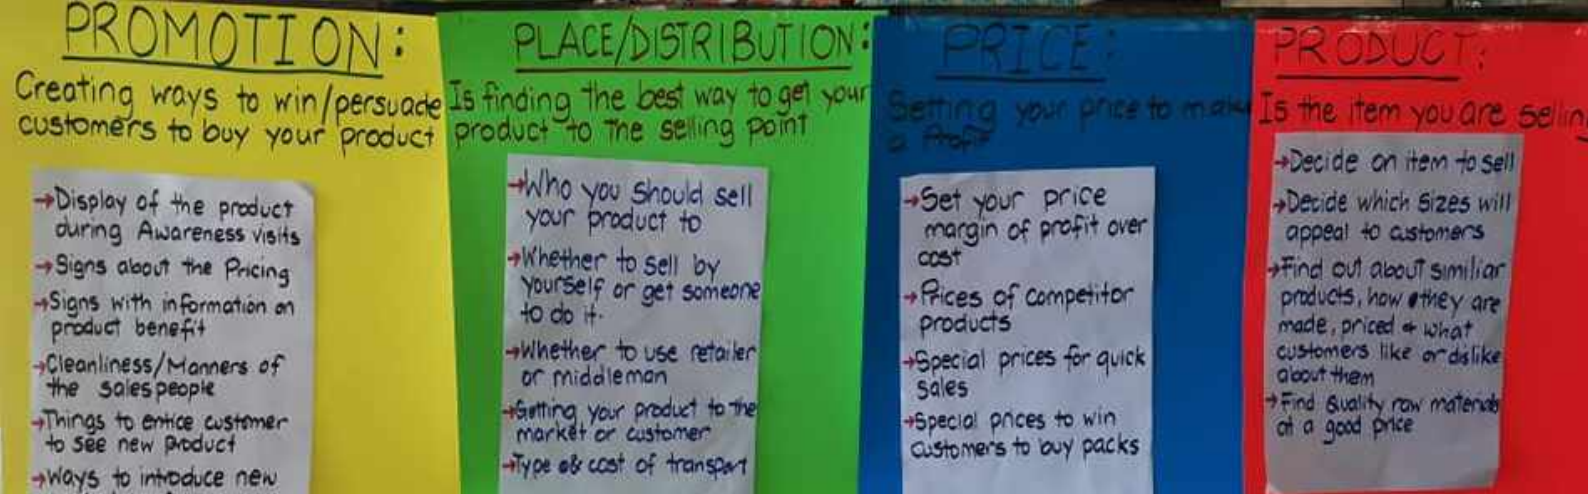 PROMOTION:
Creating ways to win/persuade
customers to buy your product
→Display of the product
during Awareness visits
→Signs about the Pricing
→Signs with information on
product benefit
→Cleanliness/Manners of
the salespeople
→Things to entice customer
to see new product
→Ways to introduce new
PLACE/DISTRIBUTION:
Is finding the best way to get your
product to the selling point
→Who you should sell
your product to
→Whether to sell by
yourself or get someone
to do it.
→Whether to use retailer
or middleman
→Getting your product to the
market or customer
→Type & cost of transport
PRICE:
Setting your price to make
a Profit
→Set your price
margin of profit over
cost
→Prices of competitor
products
→Special prices for quick
sales
→Special prices to win
customers to buy packs
PRODUCT:
Is the item you are sellin
→Decide on item to sell
→Decide which sizes will
appeal to customers
→Find out about similiar
products, how they are
made, priced & what
customers like or dislike
about them
→Find Quality raw materials
at a good price